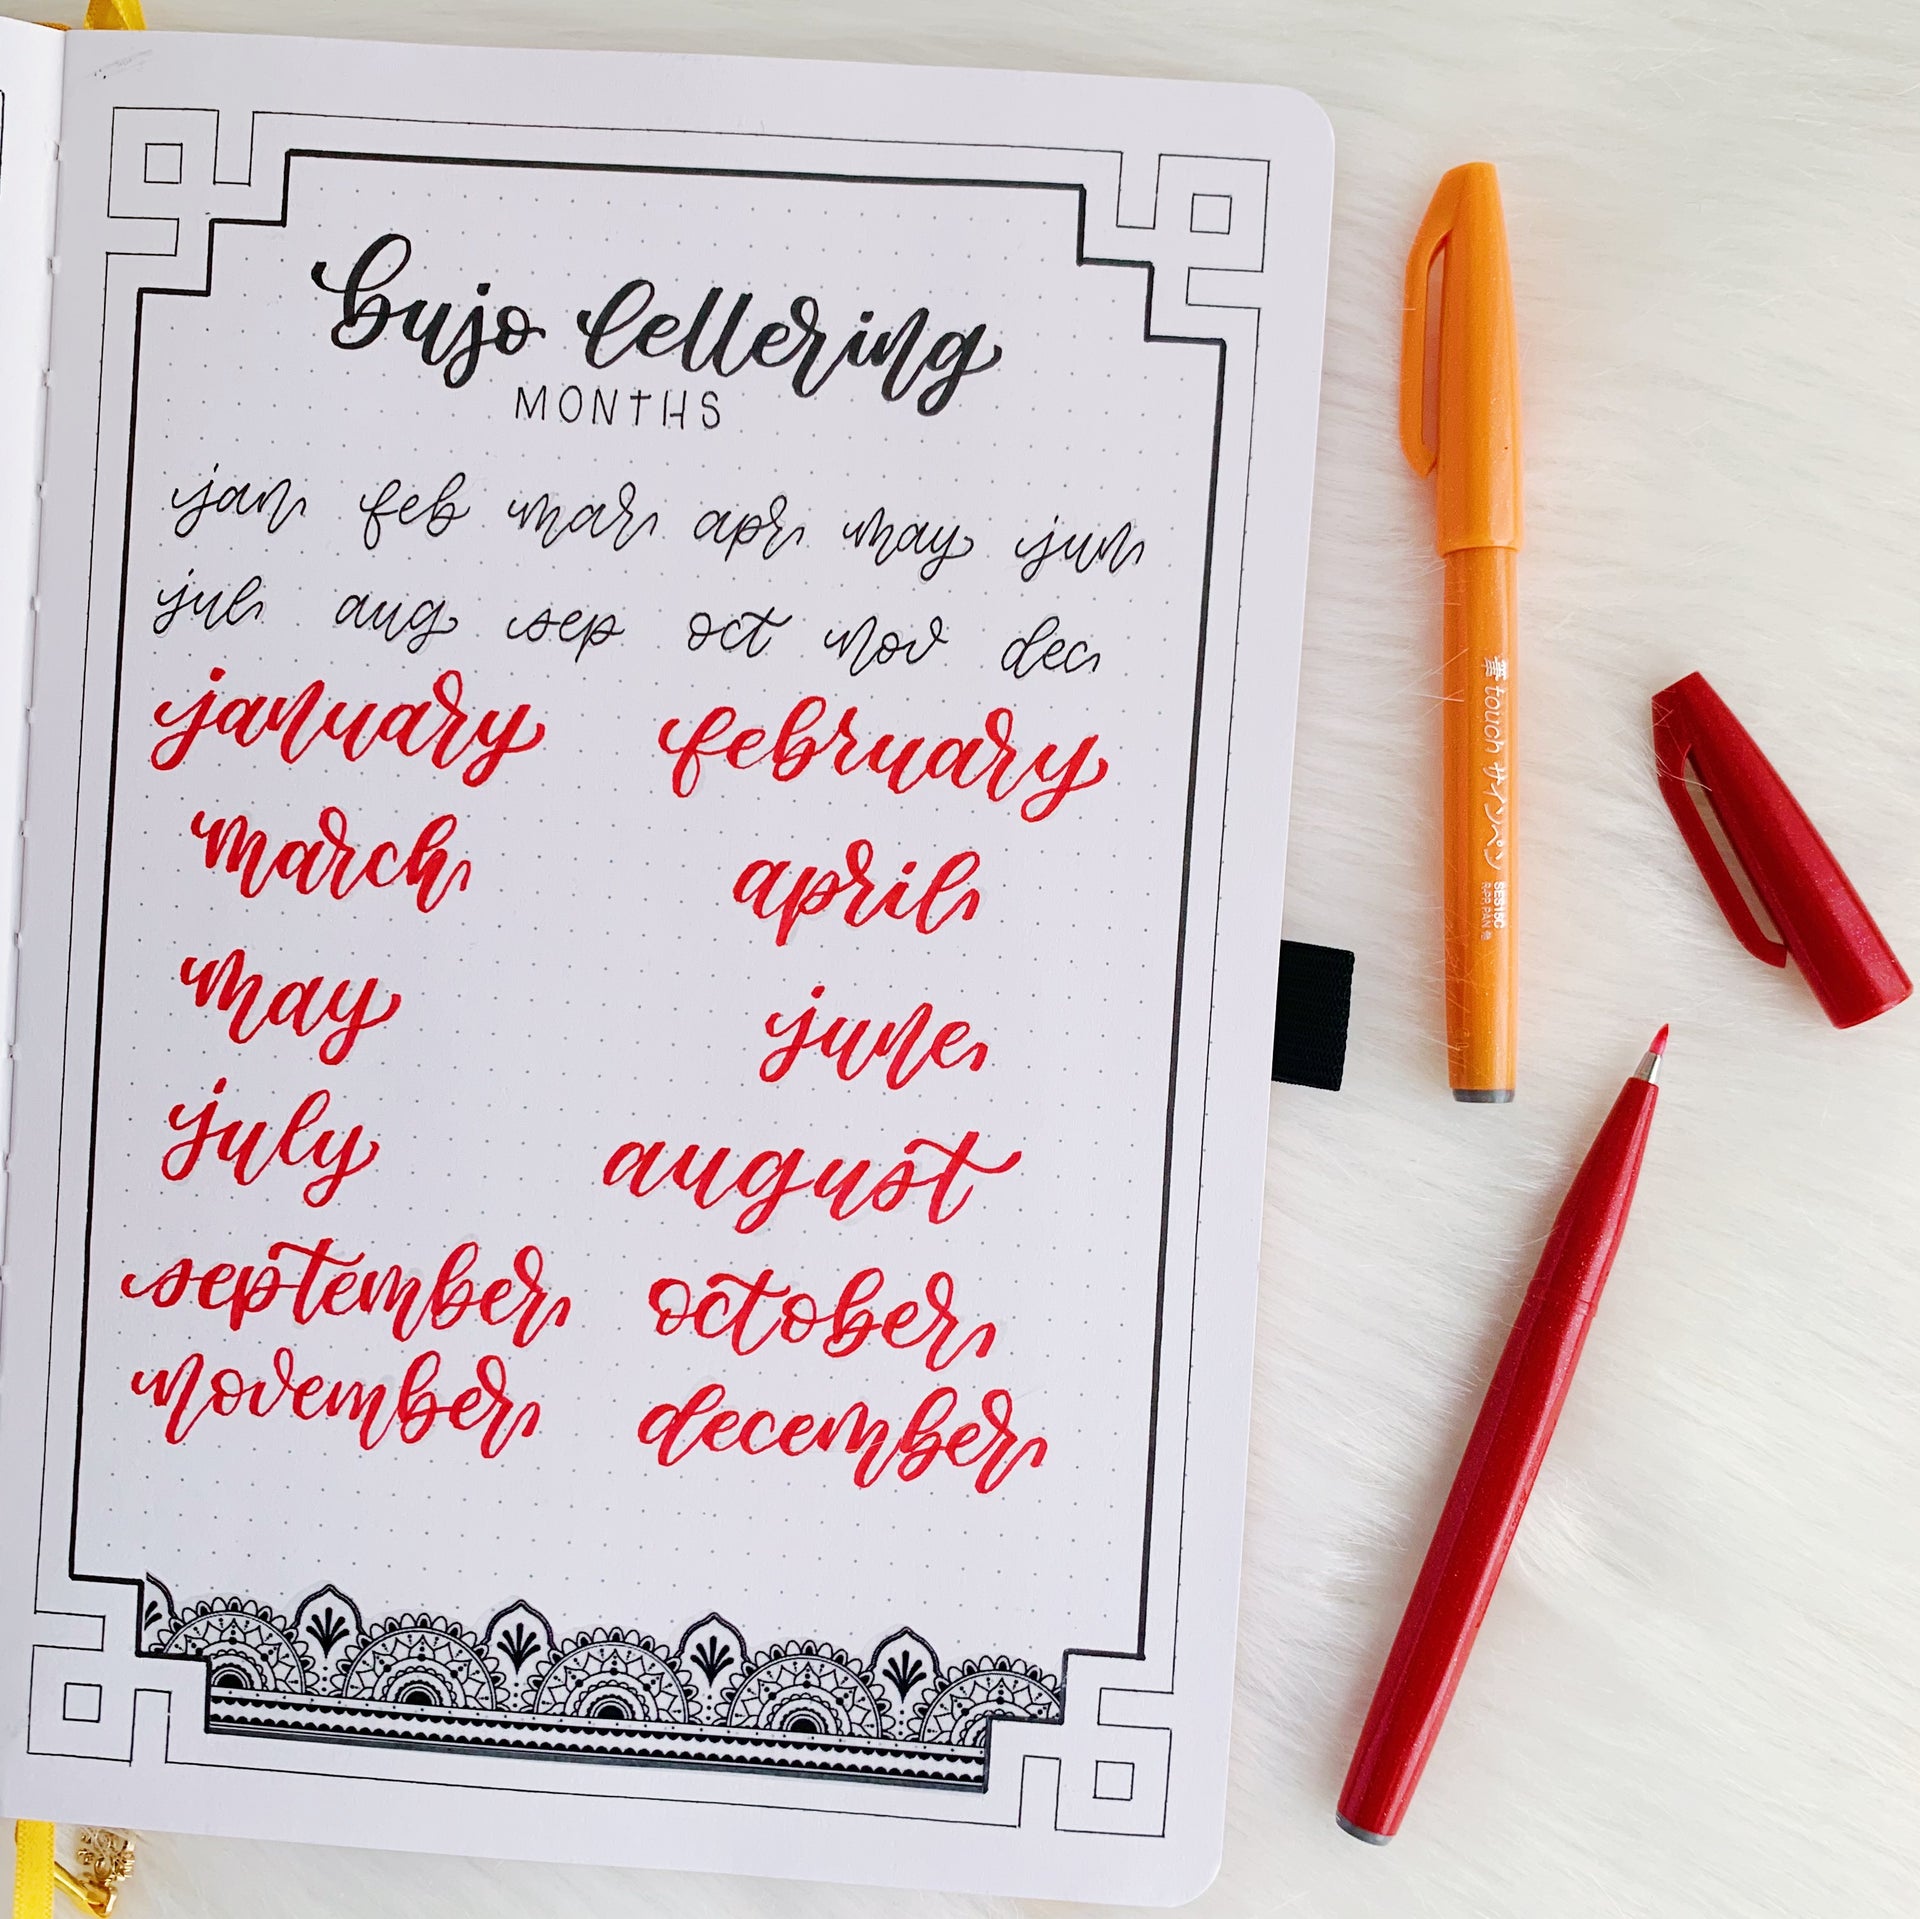 bujo lellering
MONTHS
jan feb mar apr may jun
jul aug sep oct nov dec
january february
march april
may june
july august
september october
november december
筆touch サインペン
SES15C